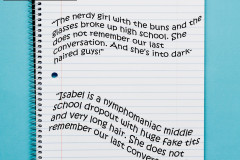 "The nerdy girl with the buns and the
glasses broke up high school. She
does not remember our last
conversation. And she's into dark-
haired guys!"
"Isabel is a nymphomaniac middle
school dropout with huge fake tits
and very long hair. She does not
remember our last convers